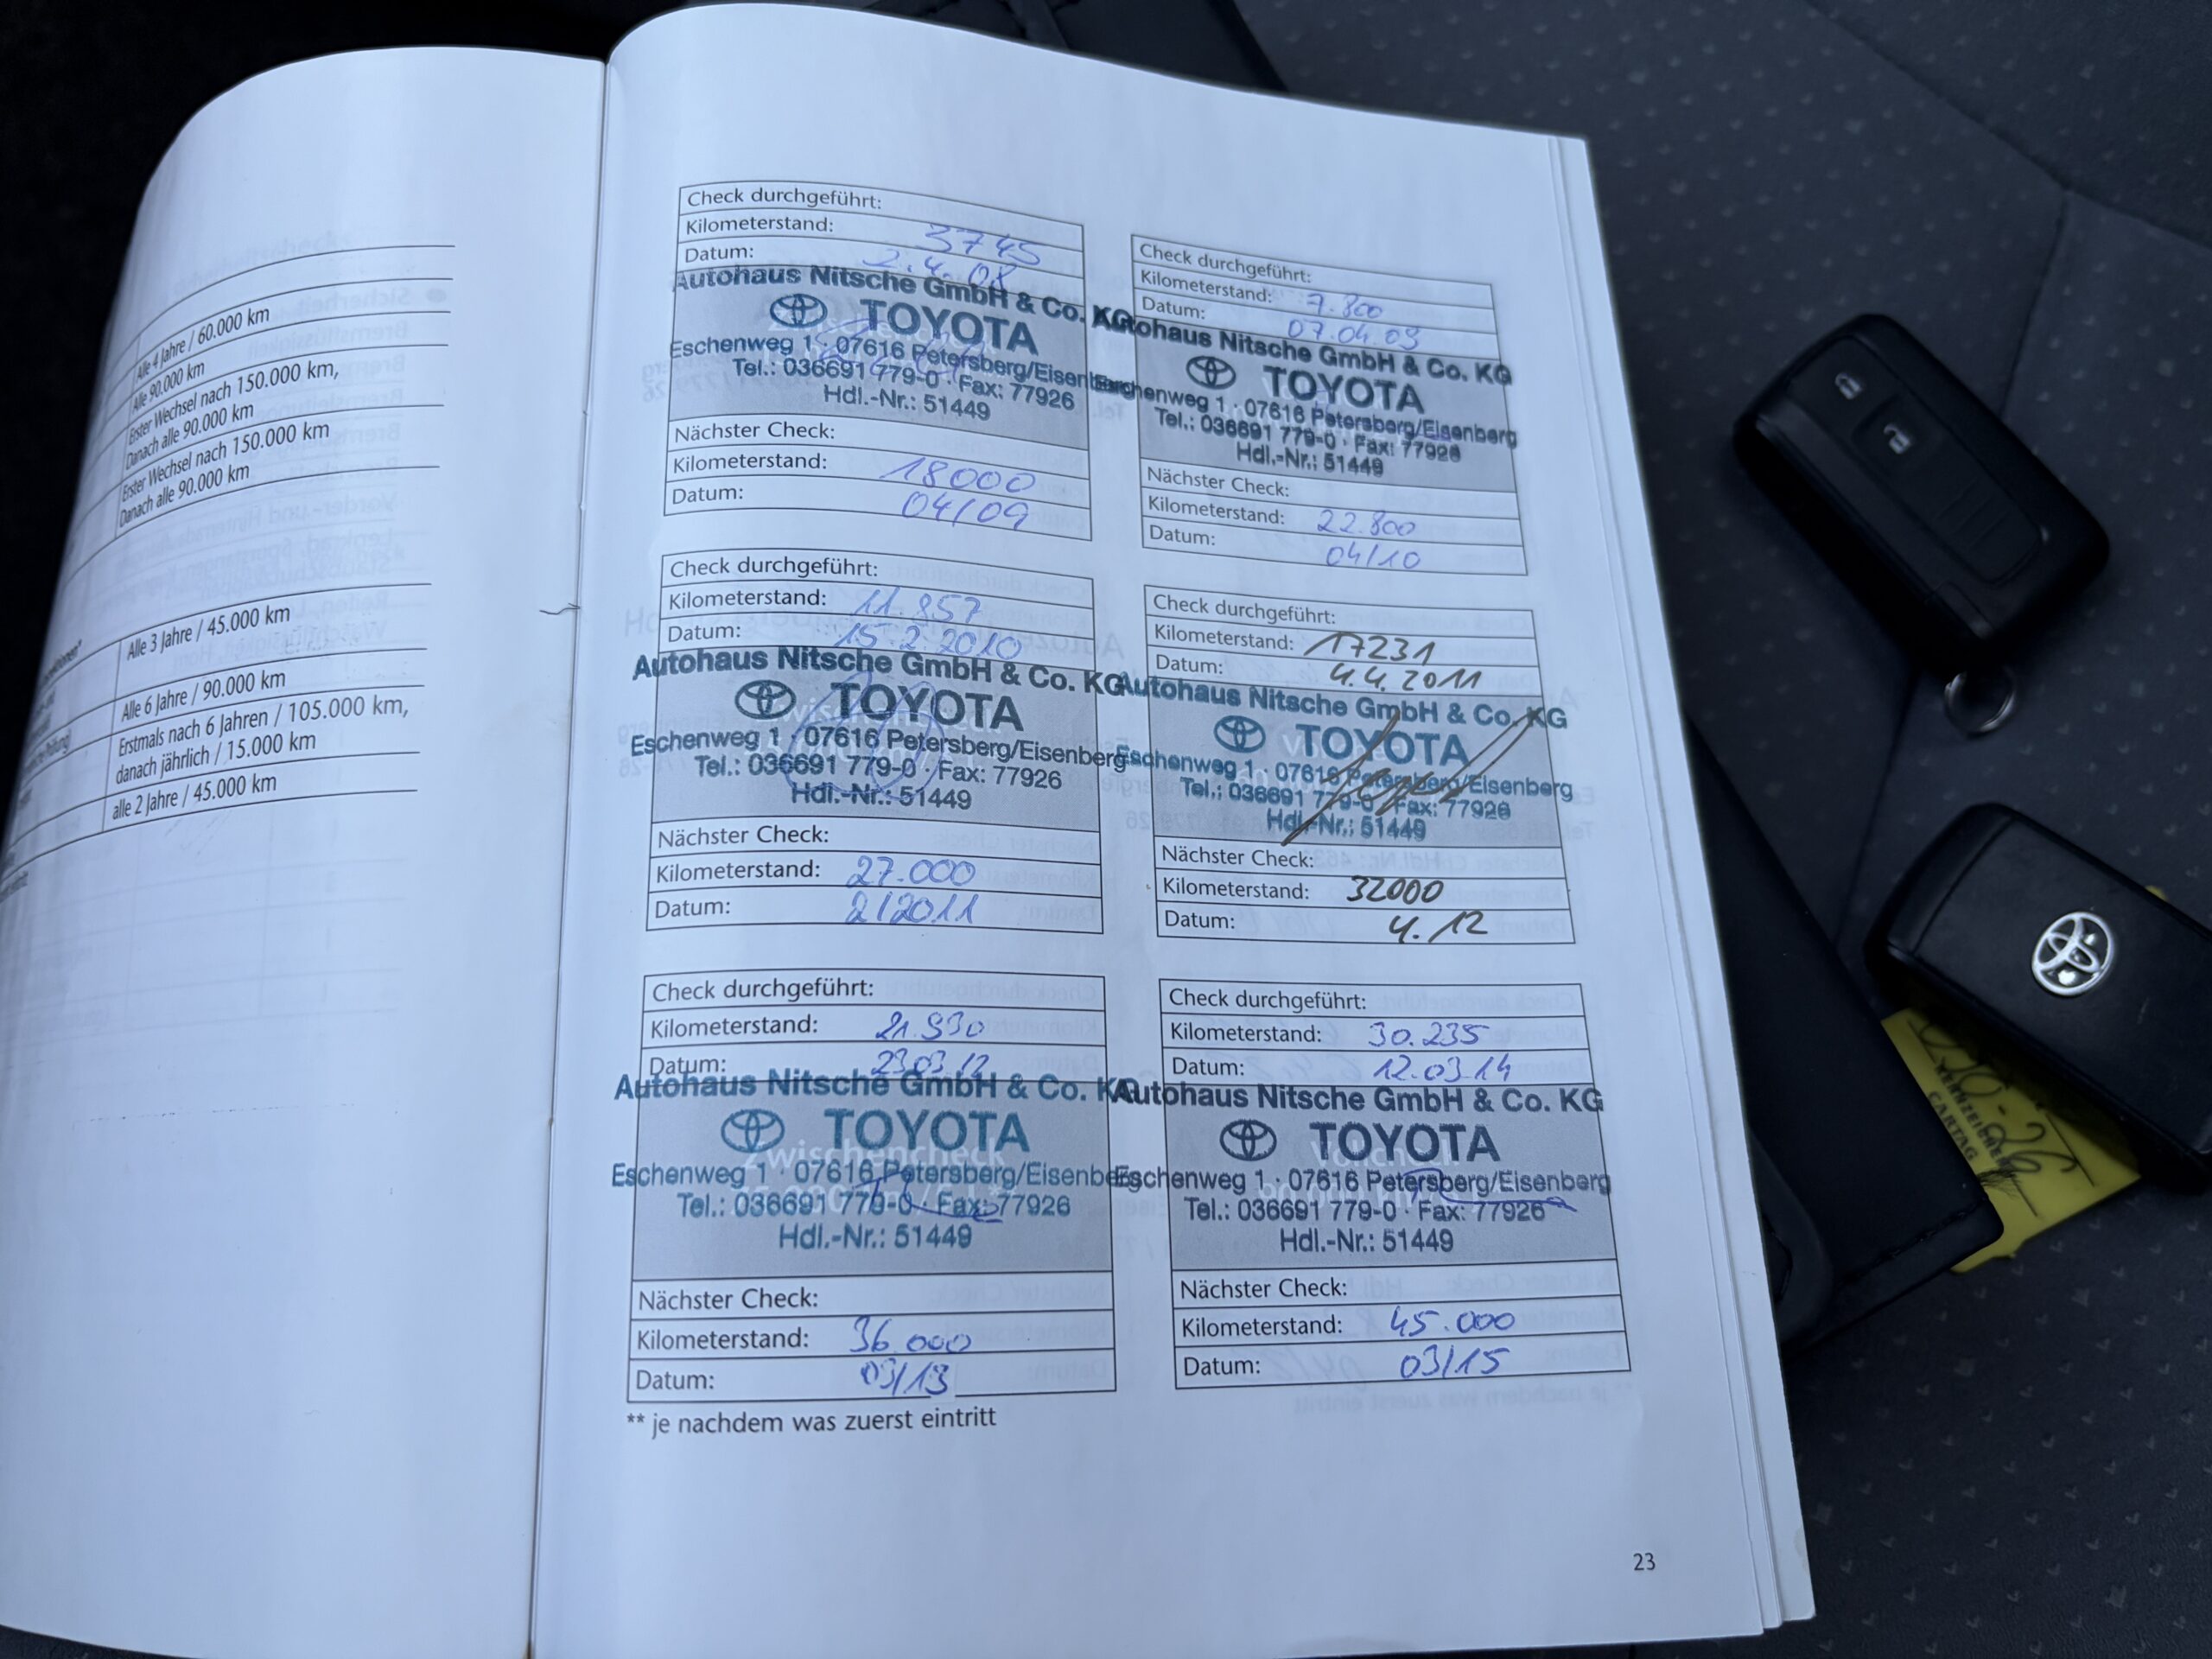 Alle 4 Jahre / 60.000 km
Alle 90.000 km
Erster Wechsel nach 150.000 km,
Danach alle 90.000 km
Erster Wechsel nach 150.000 km
Danach alle 90.000 km
Alle 3 Jahre / 45.000 km
Alle 6 Jahre / 90.000 km
Erstmals nach 6 Jahren / 105.000 km,
danach jährlich / 15.000 km
alle 2 Jahre / 45.000 km
Check durchgeführt:
Kilometerstand: 3745
Datum: 2.4.08
Autohaus Nitsche GmbH & Co. KG
TOYOTA
Eschenweg 1 · 07616 Petersberg/Eisenberg
Tel.: 036691 779-0 · Fax: 77926
Hdl.-Nr.: 51449
Nächster Check:
Kilometerstand: 18000
Datum: 04/09
Check durchgeführt:
Kilometerstand: 7.800
Datum: 07.04.09
Autohaus Nitsche GmbH & Co. KG
TOYOTA
Eschenweg 1 · 07616 Petersberg/Eisenberg
Tel.: 036691 779-0 · Fax: 77926
Hdl.-Nr.: 51449
Nächster Check:
Kilometerstand: 22.800
Datum: 04/10
Check durchgeführt:
Kilometerstand: 11.857
Datum: 15.2.2010
Autohaus Nitsche GmbH & Co. KG
TOYOTA
Eschenweg 1 · 07616 Petersberg/Eisenberg
Tel.: 036691 779-0 · Fax: 77926
Hdl.-Nr.: 51449
Nächster Check:
Kilometerstand: 27.000
Datum: 2/2011
Check durchgeführt:
Kilometerstand: 17231
Datum: 4.4.2011
Autohaus Nitsche GmbH & Co. KG
TOYOTA
Eschenweg 1 · 07616 Petersberg/Eisenberg
Tel.: 036691 779-0 · Fax: 77926
Hdl.-Nr.: 51449
Nächster Check:
Kilometerstand: 32000
Datum: 4.12
Check durchgeführt:
Kilometerstand: 21.930
Datum: 23.03.12
Autohaus Nitsche GmbH & Co. KG
TOYOTA
Zwischencheck
Eschenweg 1 · 07616 Petersberg/Eisenberg
Tel.: 036691 779-0 · Fax: 77926
Hdl.-Nr.: 51449
Nächster Check:
Kilometerstand: 36.000
Datum: 03/13
Check durchgeführt:
Kilometerstand: 30.235
Datum: 12.03.14
Autohaus Nitsche GmbH & Co. KG
TOYOTA
Eschenweg 1 · 07616 Petersberg/Eisenberg
Tel.: 036691 779-0 · Fax: 77926
Hdl.-Nr.: 51449
Nächster Check:
Kilometerstand: 45.000
Datum: 03/15
** je nachdem was zuerst eintritt
23
KENNZEICHEN
CARTAG